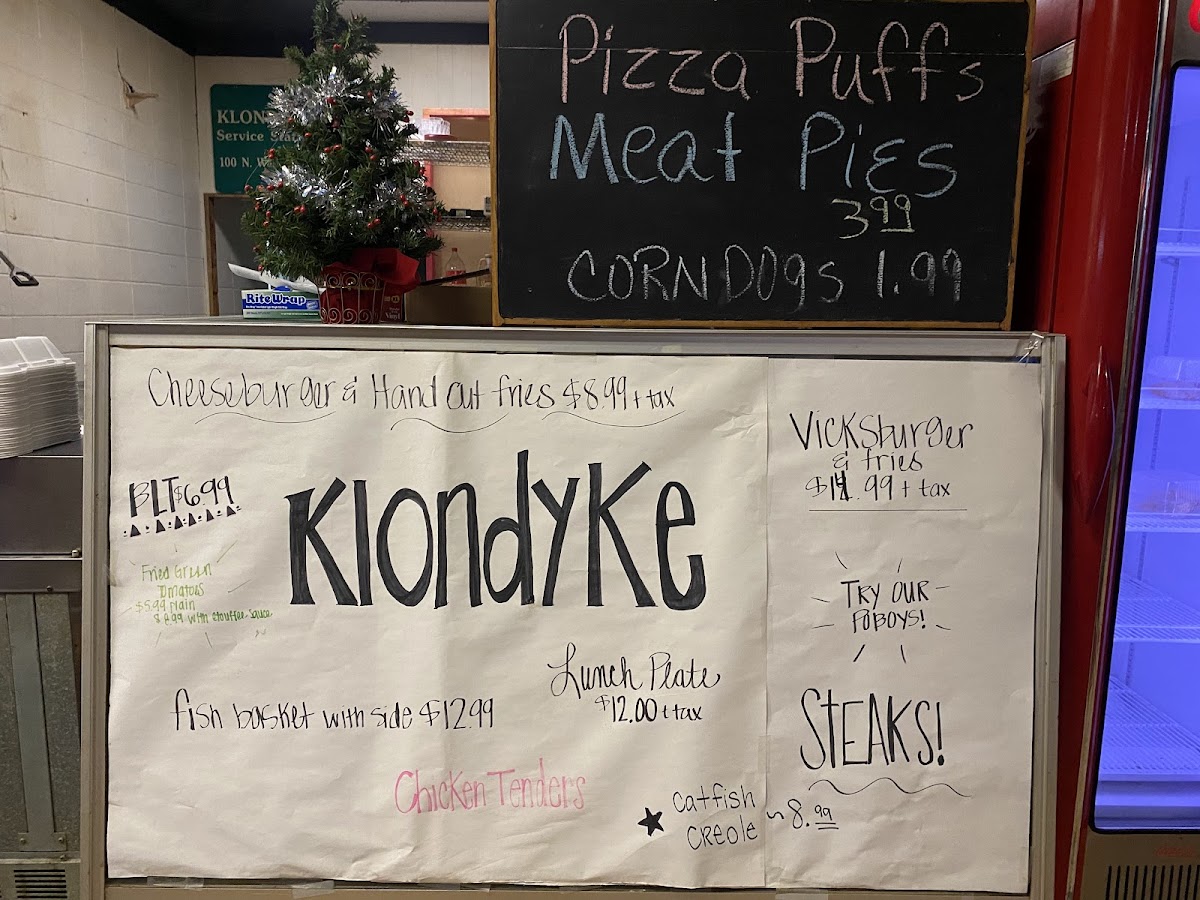 Pizza Puffs
Meat Pies
3.99
CORNDOgs 1.99
KLON
Service Sta
100 N. W
RiteWrap
Cheeseburger & Hand cut fries $8.99 + tax
BLT $6.99
Fried Green
Tomatoes
$5.99 Plain
$8.99 with etouffee sauce
Klondyke
fish basket with side $12.99
Lunch Plate
$12.00 + tax
Chicken Tenders
★ Catfish
CREOLE ~ 8.99
VicKSburger
& fries
.99 + tax
TRY OUR
POBOYS!
STEAKS!